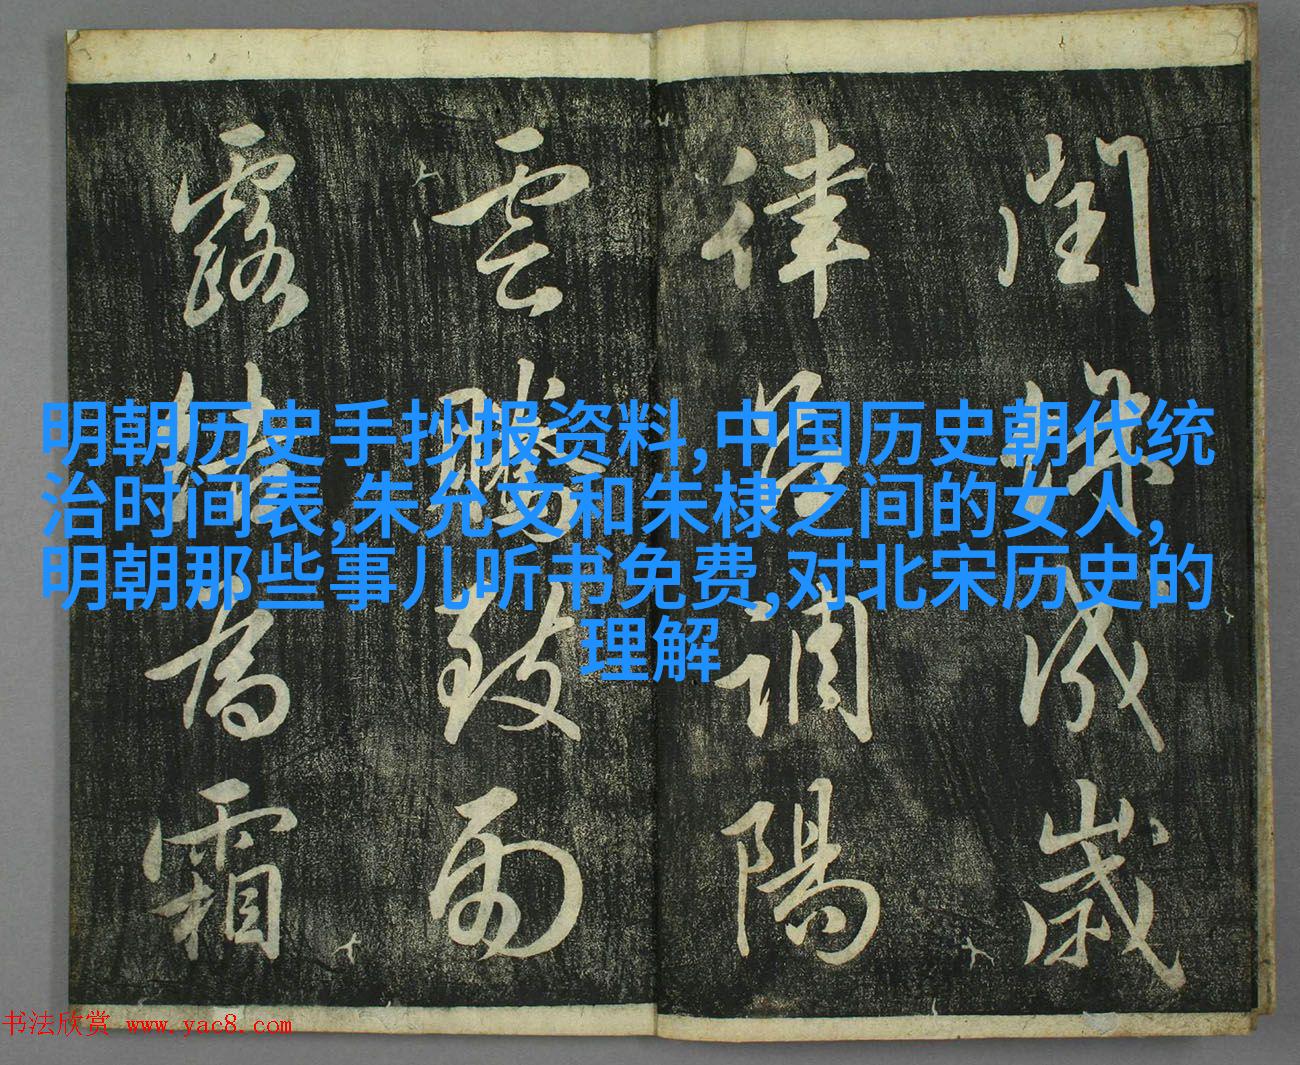 閏餘成歲
律呂調陽
雲騰致雨
露結為霜
明朝历史手抄报资料,中国历史朝代统
治时间表,朱允文和朱棣之间的女人,
明朝那些事儿听书免费,对北宋历史的
理解
书法欣赏 www.yac8.com